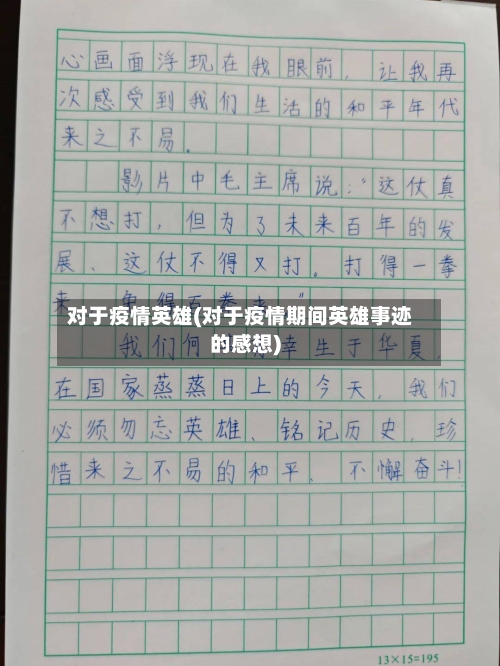 心画面浮现在我眼前，让我再
次感受到我们生活的和平年代
来之不易。
影片中毛主席说："这仗真
不想打，但为了未来百年的发
展、这仗不得又打。打得一拳
对于疫情英雄(对于疫情期间英雄事迹
的感想)
我们何幸生于华夏，
在国家蒸蒸日上的今天，我们
必须勿忘英雄、铭记历史，珍
惜来之不易的和平、不懈奋斗!
13×15=195